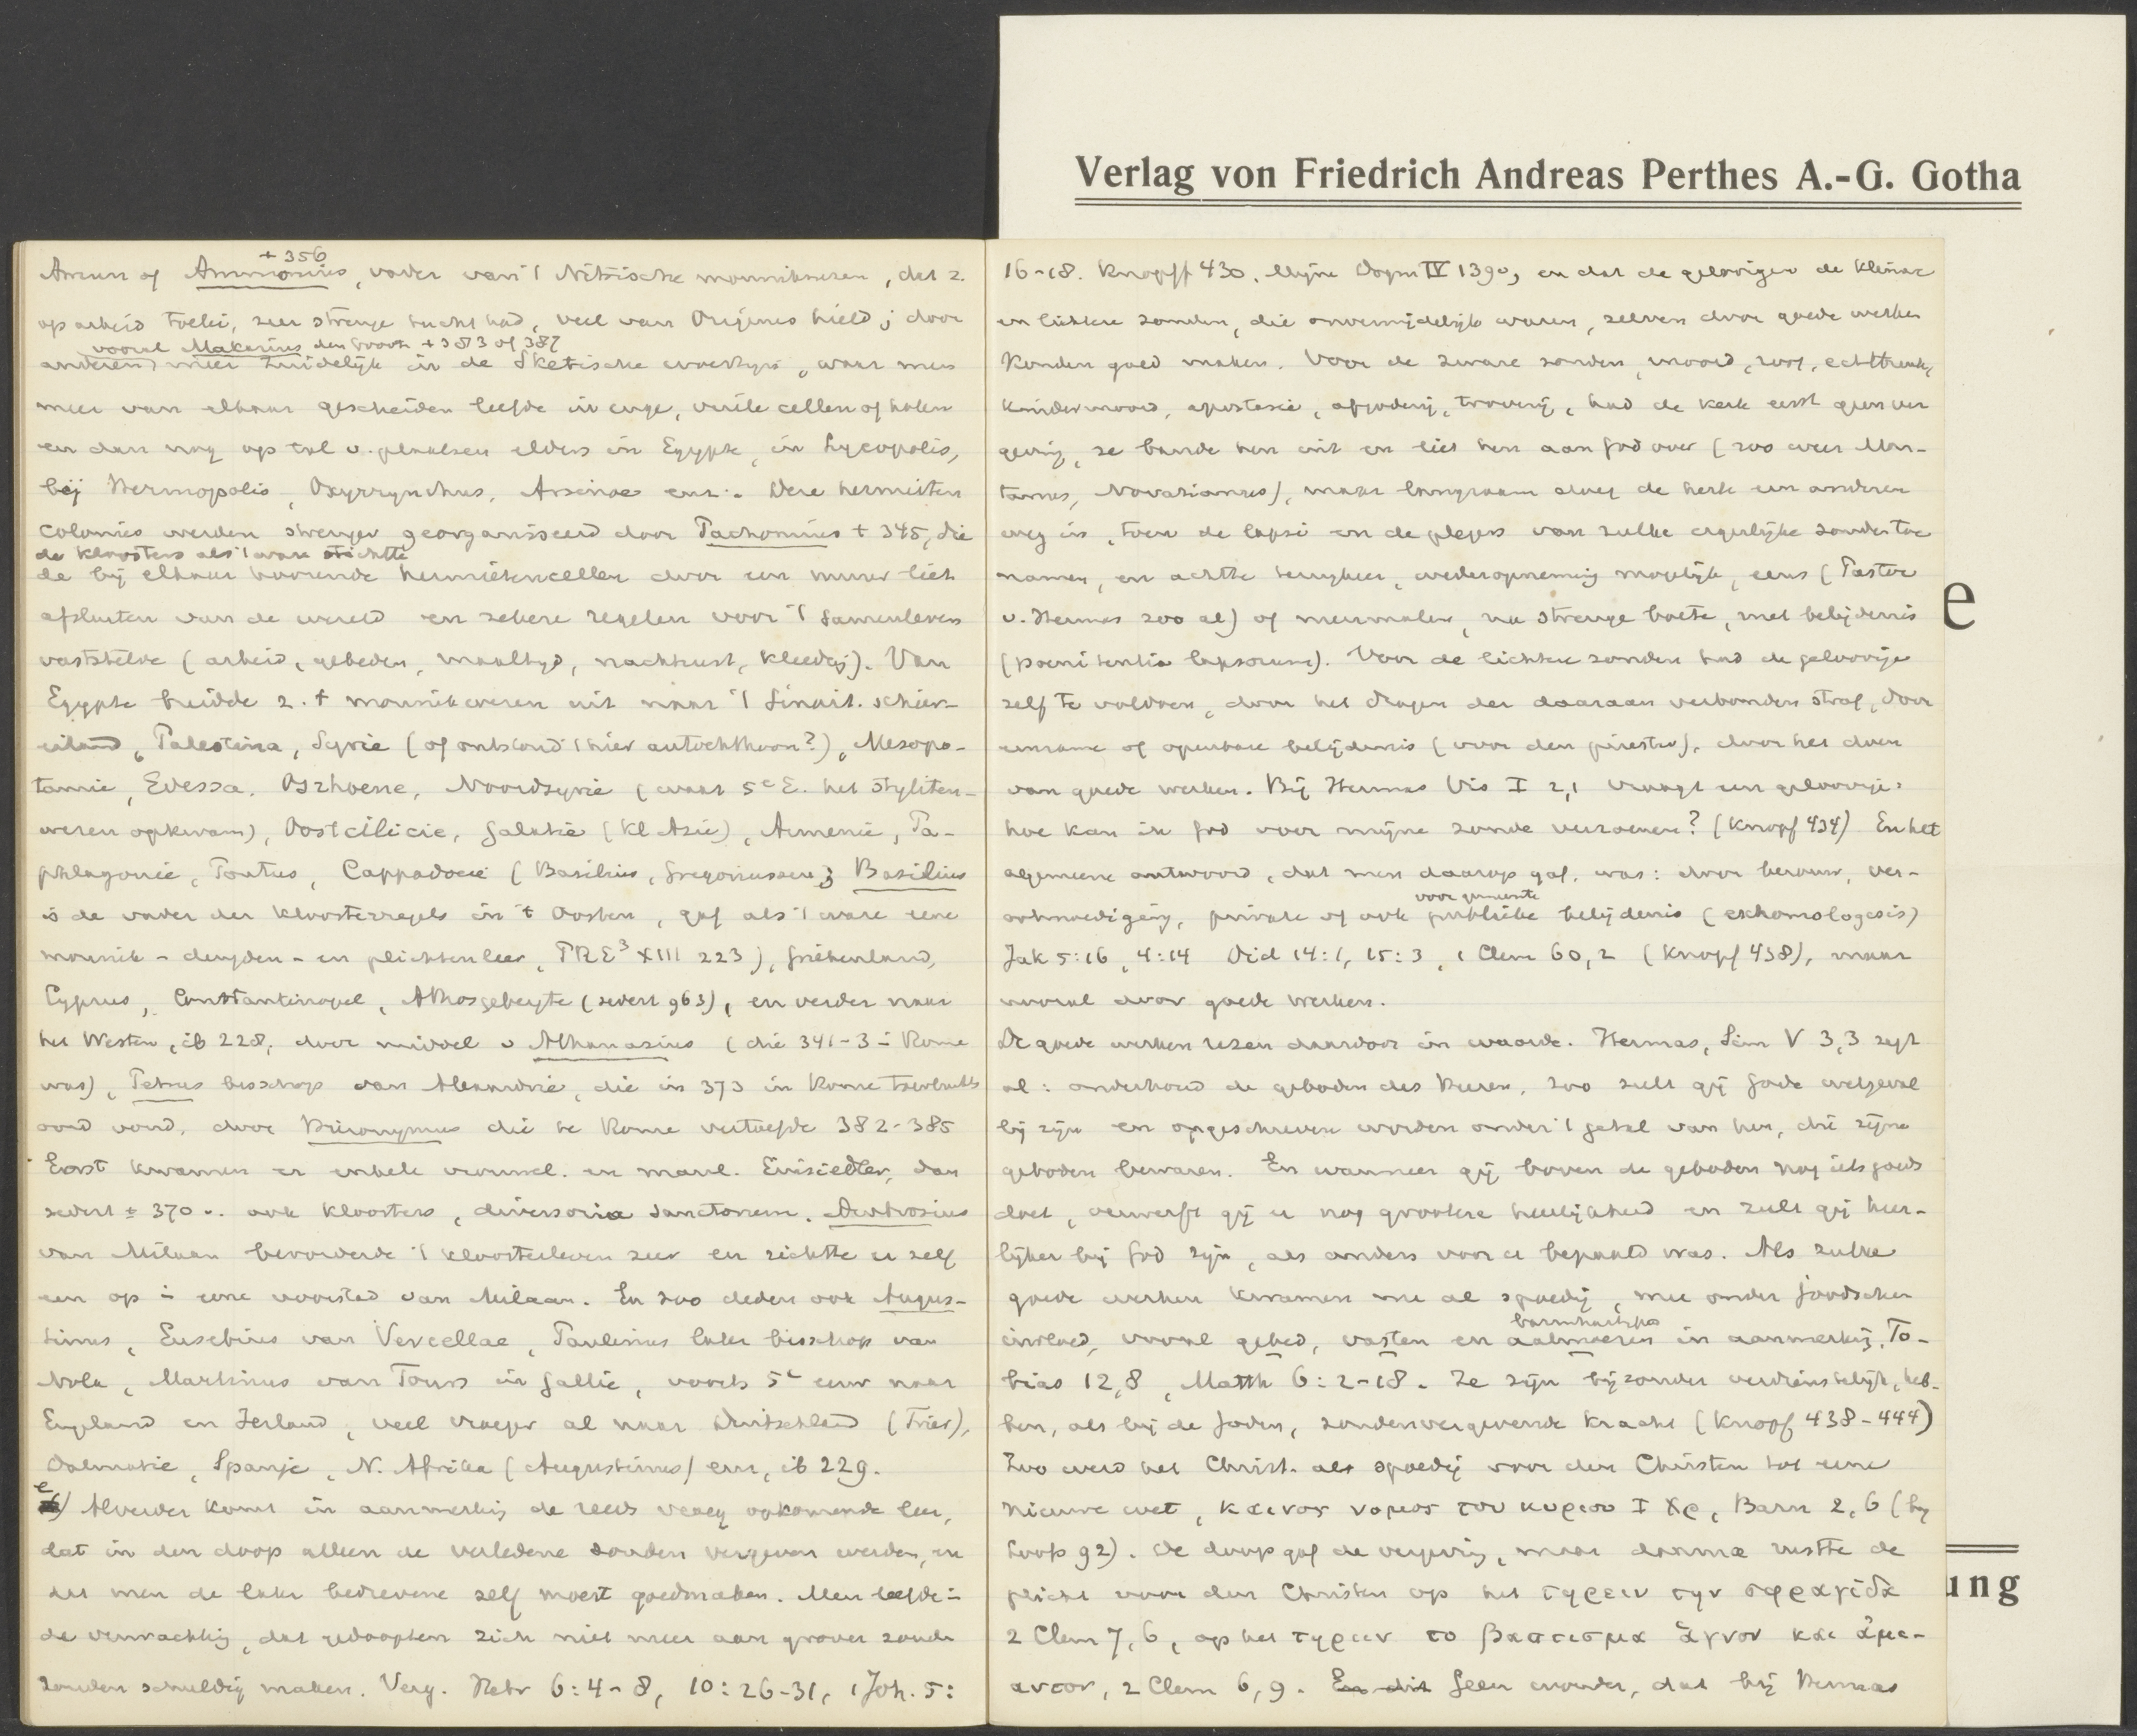 Verlag von Friedrich Andreas Perthes A.-G. Gotha
† 356
Amun of Ammonius, vader van 't Nitrische monnikwezen, dat z.
op arbeid toelei, zeer strenge tucht had, veel van Origenes hield; door
vooral Makarius den Groote † 383 of 387
anderen meer zuidelijk in de Sketische woestijn, waar men
meer van elkaar gescheiden leefde in enge, vuile cellen of holen
en dan nog op tal v. plaatsen elders in Egypte, in Lycopolis,
bij Hermopolis, Oxyrrynchus, Arsinoe enz. Deze hermieten
colonies werden strenger georganiseerd door Pachomius † 345, die
de kloosters als 't ware stichtte
de bij elkaar hoorende hermietencellen door een muur liet
afsluiten van de wereld en zekere regelen voor 't samenleven
vaststelde (arbeid, gebeden, maaltijd, nachtrust, kleeding). Van
Egypte breidde z. 't monnikwezen uit naar 't Sinait. schier-
eiland, Palestina, Syrie (of ontstond 't hier autochthoon?), Mesopo-
tamie, Edessa, Osrhoene, Noordsyrie (waar 5e E. het styliten-
wezen opkwam), Oostcilicie, Galatie (Kl Azie), Armenie, Pa-
phlagonie, Pontus, Cappadocie (Basilius, Gregoriussen; Basilius
is de vader der kloosterregels in 't Oosten, gaf als 't ware eene
monnik- deugden- en plichtenleer, PRE³ XIII 223), Griekenland,
Cyprus, Constantinopel, Athosgebergte (sedert 963), en verder naar
het Westen, ib 228, door middel v Athanasius (die 341-3 in Rome
was), Petrus bisschop van Alexandrie, die in 373 in Rome toevluchts
oord vond, door Hieronymus die te Rome vertoefde 382-385
Eerst kwamen er enkele vrouwel. en manl. Einsiedler, dan
sedert ± 370 ook kloosters, diversoria sanctorum. Ambrosius
van Milaan bevorderde 't kloosterleven zeer en richtte er zelf
een op in eene voorstad van Milaan. En zoo deden ook Augus-
tinus, Eusebius van Vercellae, Paulinus later bisschop van
Nola, Martinus van Tours in Gallie, voorts 5e eeuw naar
England en Ierland, veel vroeger al naar Duitschland (Trier),
Dalmatie, Spanje, N. Afrika (Augustinus) enz, ib 229.
e) Alverder komt in aanmerking de reeds vroeg opkomende leer,
dat in den doop alleen de verledene zonden vergeven werden, en
dat men de later bedrevene zelf moest goedmaken. Men leefde in
de verwachting, dat gedoopten zich niet meer aan grover zonde
zouden schuldig maken. Verg. Hebr 6:4-8, 10:26-31, 1 Joh. 5:
16-18. Knopff 430. Mijne Dogm IV 139, en dat de geloovigen de kleinere
en lichtere zonden, die onvermijdelijk waren, zelven door goede werken
konden goed maken. Voor de zware zonden, moord, roof, echtbreuk,
kindermoord, apostasie, afgoderij, trouwij, had de kerk eerst geen ver
geving, ze bande hen uit en liet hen aan God over (zoo weer Mon-
tanus, Novatianus), maar langzaam sloeg de kerk een anderen
weg in, toen de lapsi en de plegers van zulke ergerlijke zonden toe
namen, en achtte terugkeer, wederopneming mogelijk, eens (Pastor
v. Hermas zoo al) of meermalen, na strenge boete, met belijdenis
(poenitentia lapsorum). Voor de lichtere zonden had de geloovige
zelf te voldoen, door het dragen der daaraan verbonden straf, door
eenzame of openbare belijdenis (voor den priester), door het doen
van goede werken. Bij Hermas Vis I 2,1 vraagt een geloovige:
hoe kan ik God voor mijne zonde verzoenen? (Knopf 434) En het
algemeene antwoord, dat men daarop gaf, was: door berouw, ver-
voor gemeente
ootmoediging, private of ook publieke belijdenis (exhomologesis)
Jak 5:16, 4:14 Did 14:1, 15:3, 1 Clem 60,2 (Knopf 438), maar
vooral door goede werken.
De goede werken rezen daardoor in waarde. Hermas, Sim V 3,3 zegt
al: onderhoud de geboden des Heeren, zoo zult gij Gode welgeval
lig zijn en opgeschreven worden onder 't getal van hen, die zijne
geboden bewaren. En wanneer gij boven de geboden nog iets goeds
doet, verwerft gij u nog grootere heerlijkheid en zult gij heer-
lijker bij God zijn, als anders voor u bepaald was. Als zulke
goede werken kwamen nu al spoedig, mee onder Joodschen
barmhartighe
invloed, vooral gebed, vasten en aalmoezen in aanmerking, To-
bias 12,8, Matth 6:2-18. Ze zijn bijzonder verdienstelijk, heb-
ben, als bij de Joden, zondenvergevende kracht (Knopf 438-444)
Zoo werd het Christ. als spoedig voor den Christen tot eene
nieuwe wet, καινος νομος του κυριου Ι Χρ, Barn 2,6 (bij
Loofs 92). De doop gaf de vergeving, maar daarna rustte de
plicht voor den Christen op het τηρειν την σφραγίδα
2 Clem 7,6, op het τηρειν το βαπτισμα ἁγνον και ἀμι-
αντον, 2 Clem 6,9. En dit Geen wonder, dat bij Hermas
e
ung